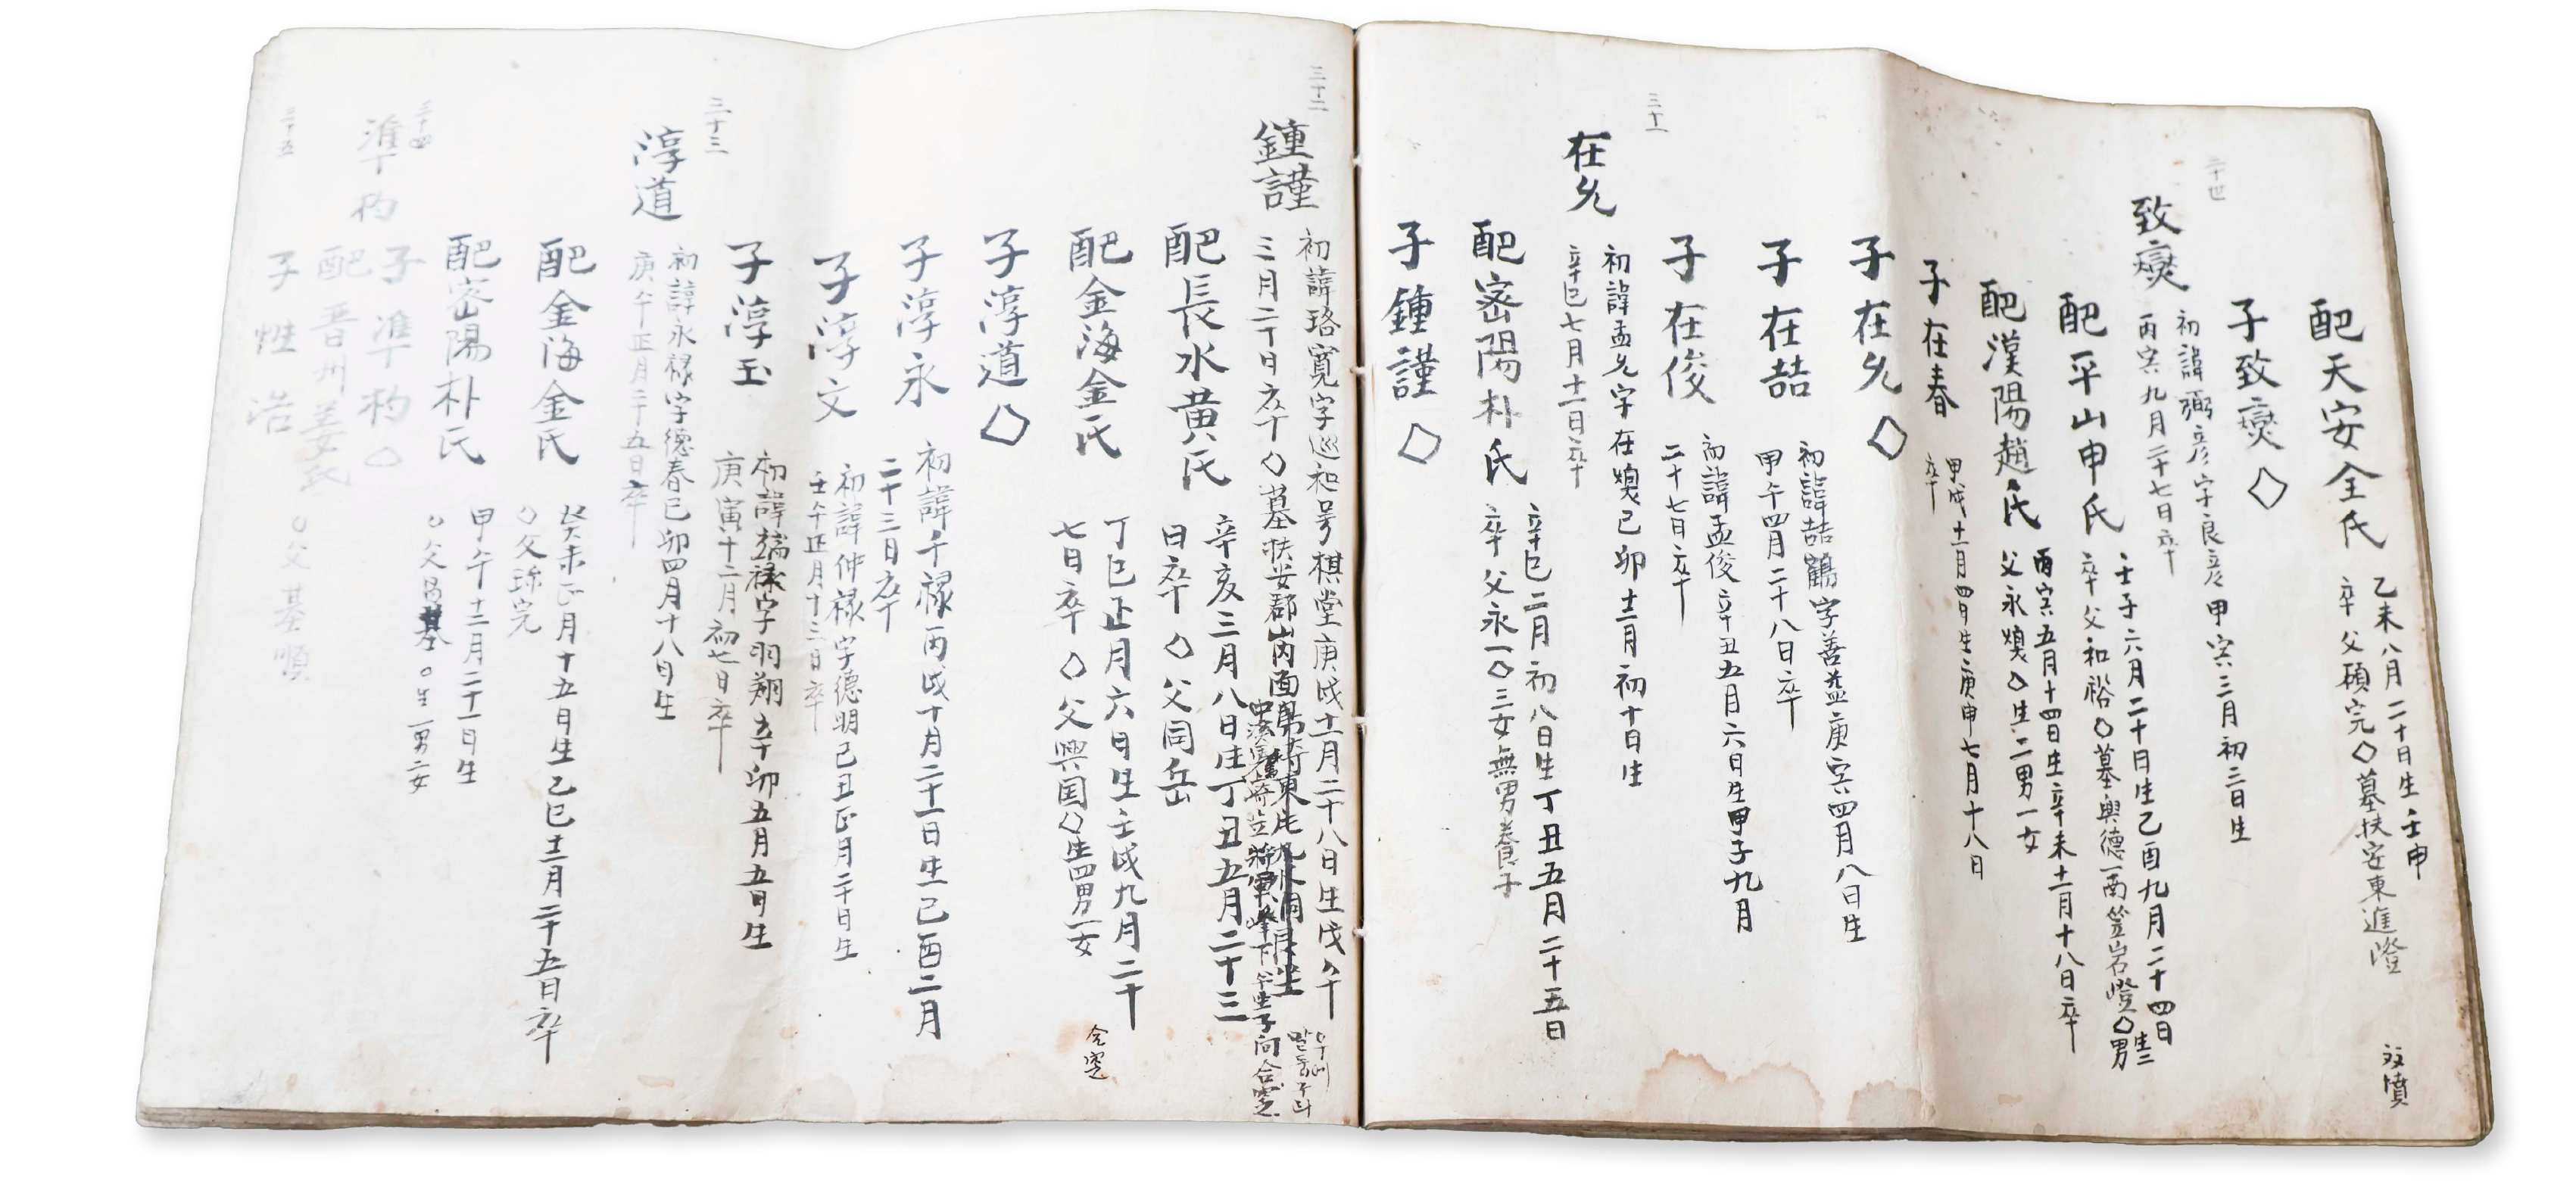 配天安全氏
乙未八月二十日生壬申
卒父碩完◇墓扶安東進
双墳
子致㷜◇
三十世
致㷜
初諱 彦字良彦甲寅三月初三日生
丙寅九月二十七日卒
配平山申氏
壬子六月二十日生乙酉九月二十四日
卒父和裕◇墓興德一西笠岩嶝◇生三
男
配漢陽趙氏
丙寅五月十四日生辛未十一月十八日卒
父永煥◇生二男一女
子在春
甲戌十一月四日生庚申七月十八日
卒
子在允◇
子在喆
初諱喆鶴字善益庚寅四月八日生
甲午四月二十八日卒
子在俊
初諱孟俊辛丑五月六日生甲子九月
二十七日卒
三十一
在允
初諱孟允字在煥己卯十二月初十日生
辛巳七月十一日卒
配密陽朴氏
辛巳二月初八日生丁丑五月二十五日
卒父永一◇三女無男養子
子鍾謹◇
三十二
鍾謹
初諱珞寬字巡和号棋堂庚戌十一月二十八日生戊午
三月二十日卒◇墓扶安郡山内面
將軍峰下午坐子向合窆
配長水黄氏
辛亥三月八日生丁丑五月二十三
日卒◇父同岳
配金海金氏
丁巳正月六日生壬戌九月二十
七日卒◇父興国◇生四男一女
合窆
子淳道◇
子淳永
初諱千禄丙戌十月二十一日生己酉二月
二十三日卒
子淳文
初諱仲禄字德明己丑正月二十日生
壬午正月十三日卒
子淳玉
初諱瑞禄字羽翔辛卯五月五日生
庚寅十二月初七日卒
三十三
淳道
初諱永禄字德春己卯四月十八日生
庚午正月二十五日卒
配金海金氏
癸未正月十五日生乙巳十二月二十五日卒
◇父珎完
配密陽朴氏
甲午十二月二十一日生
◇父昌基◇生一男二女
子準杓◇
三十四
準杓
配晋州姜氏
◇父基順
子性浩
三十五